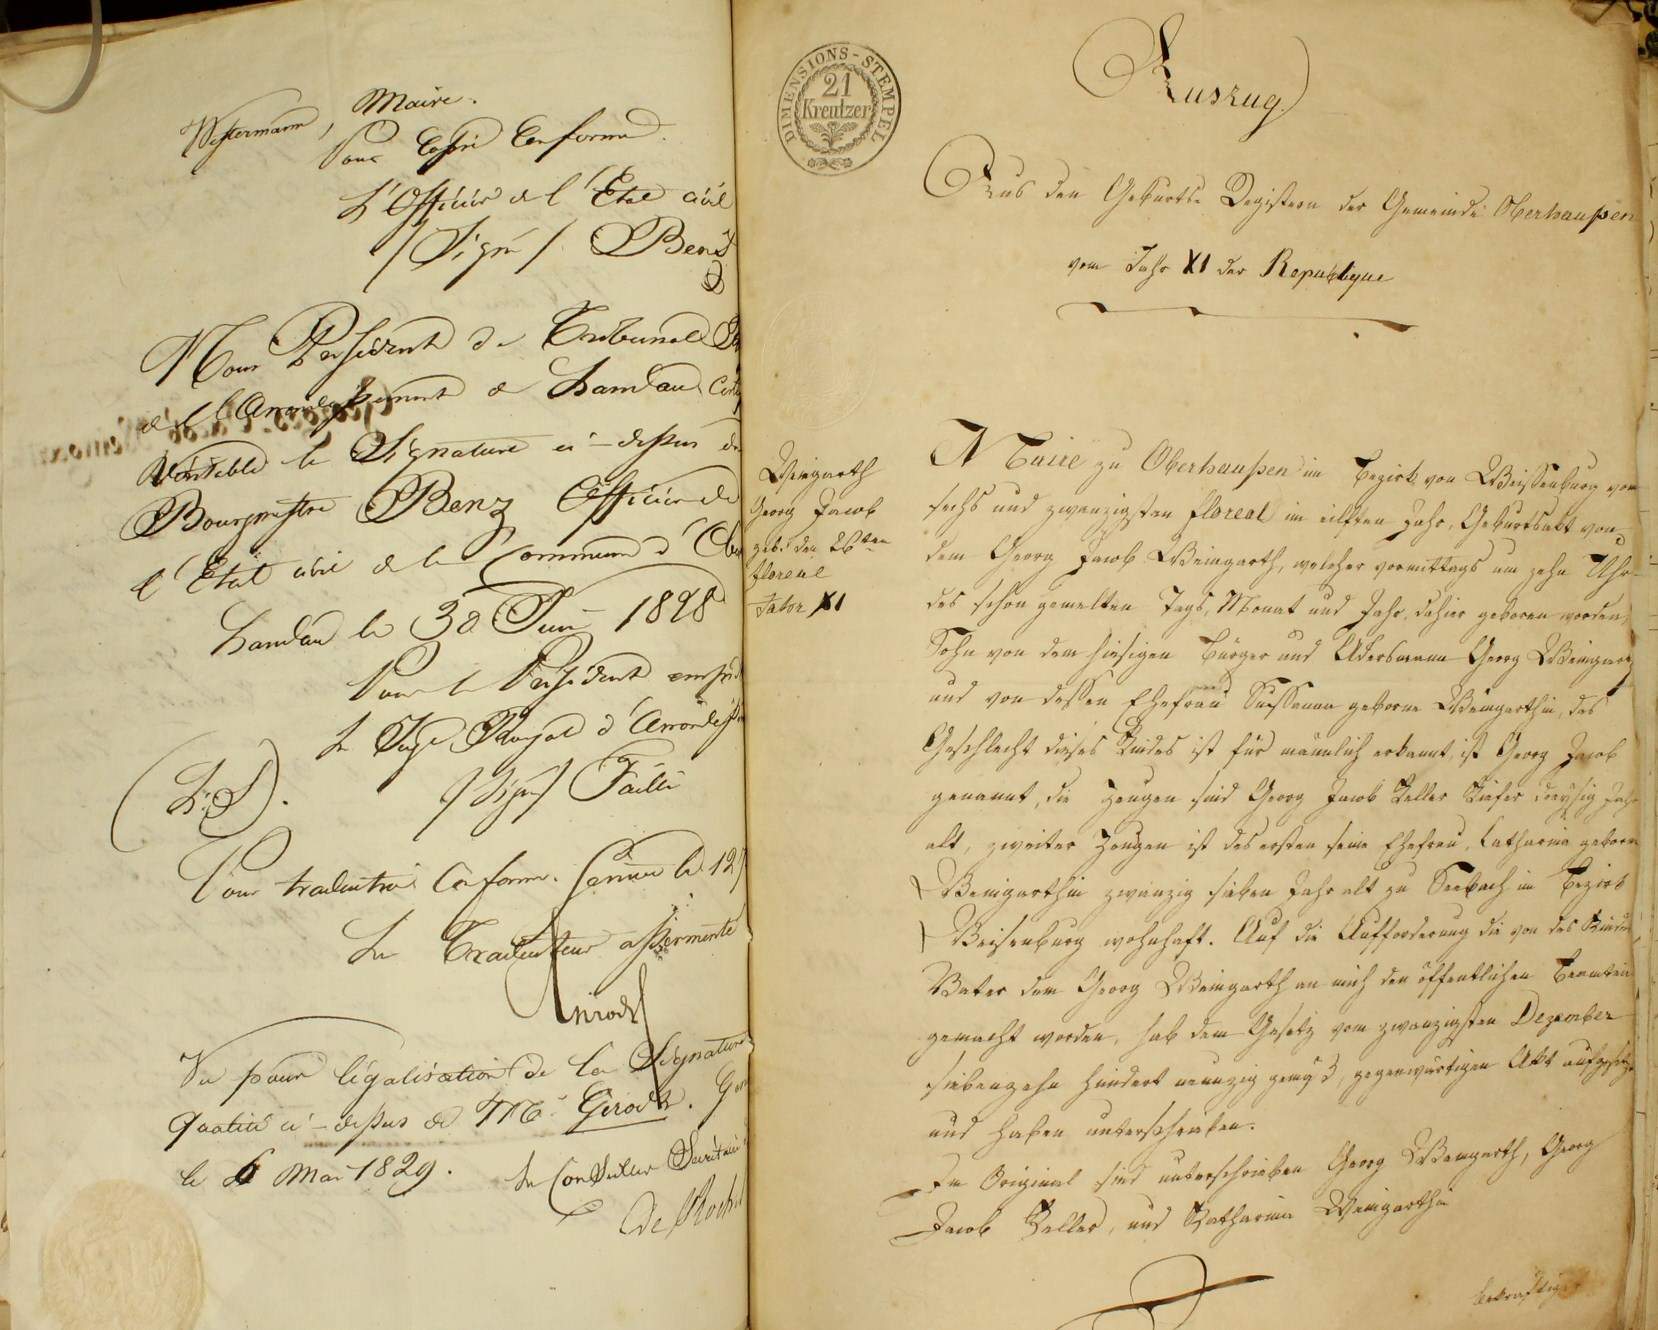 Westermann, Maire.
Pour Copie Conforme.
L'Officier de l'Etat civil
/Signé/ Benz
Nous Président du Tribunal
de l'Arrondissement de Landau
Véritable la Signature ci-dessus de
Bourgmestre Benz Officier de
l'Etat civil de la Commune d'Ober
Landau le 30 Juin 1828
Pour le Président empêché
Le Juge Royal d'Arrondisse
(L.S). /Signé/ Failli
Pour traduction Conforme. le 12
Le Traducteur assermenté
Girod
Vu pour légalisation de la Signature
qualité ci-dessus de Mr. Girod.
le 6 Mai 1829. Le Conseiller Secrétaire
De Roche
DIMENSIONS-STEMPEL
21
Kreutzer
Auszug
Aus den Geburts Registern der Gemeinde Oberhausen
vom Jahr XI der Republique
Weigarth
Georg Jacob
geb. den 26ten
floreal
Jahr XI
Mairie zu Oberhausen im Bezirk von Weissenburg vom
sechs und zwanzigsten floreal im eilften Jahr, Geburtsakt von
dem Georg Jacob Weingarth, welcher vormittags um zehn Uhr
des schon gemelten Tags, Monat und Jahr, dahier geboren worden,
Sohn von dem hiesigen Bürger und Akersmann Georg Weingarth
und von dessen Ehefrau Sussanna geborne Weingarthin, das
Geschlecht dieses Kindes ist für männlich erkannt, ist Georg Jacob
genannt, die Zeugen sind Georg Jacob Keller Kiefer dreysig Jahr
alt, zweiter Zeugen ist des ersten seine Ehefrau, Catharina geborne
Weingarthin zwanzig sieben Jahr alt zu Seebach im Bezirk
Weisenburg wohnhaft. Auf die Aufforderung die von des Kindes
Vater dem Georg Weingarth an mich den öffentlichen Beamten
gemacht worden, hab dem Gesetz vom zwanzigsten Dezember
siebenzehn hundert neunzig gemäs, gegenwärtigen Akt aufgesetzt
und haben unterschrieben.
Im Original sind unterschrieben Georg Weingarth, Georg
Jacob Keller, und Katharina Weingarthin
bekräftiget